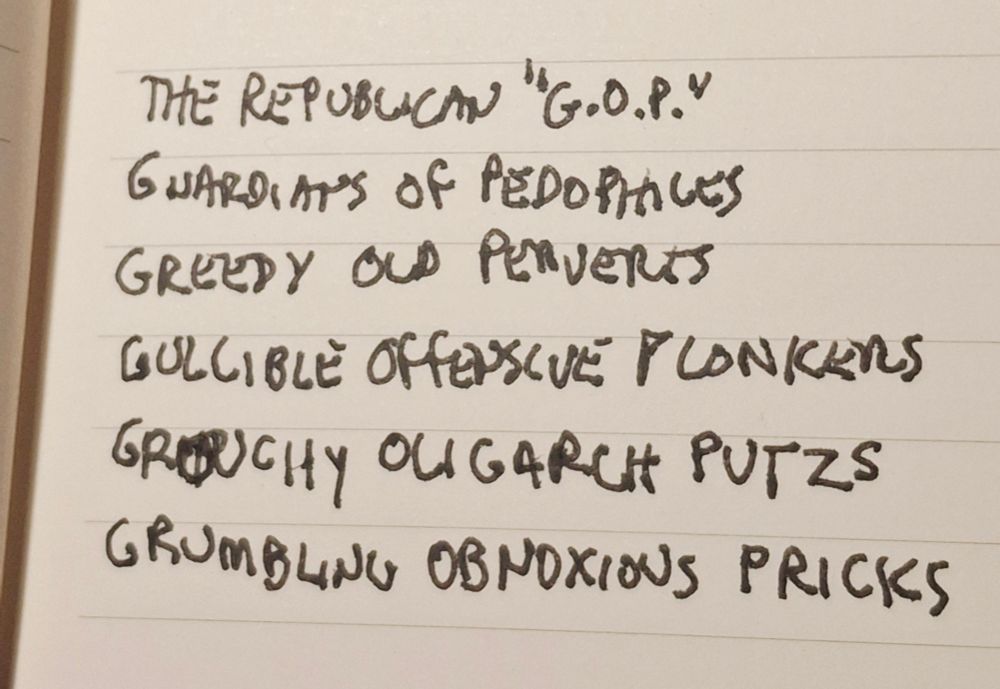 THE REPUBLICAN "G.O.P."
GUARDIANS OF PEDOPHILES
GREEDY OLD PERVERTS
GULLIBLE OFFENSIVE PLONKERS
GROUCHY OLIGARCH PUTZS
GRUMBLING OBNOXIOUS PRICKS